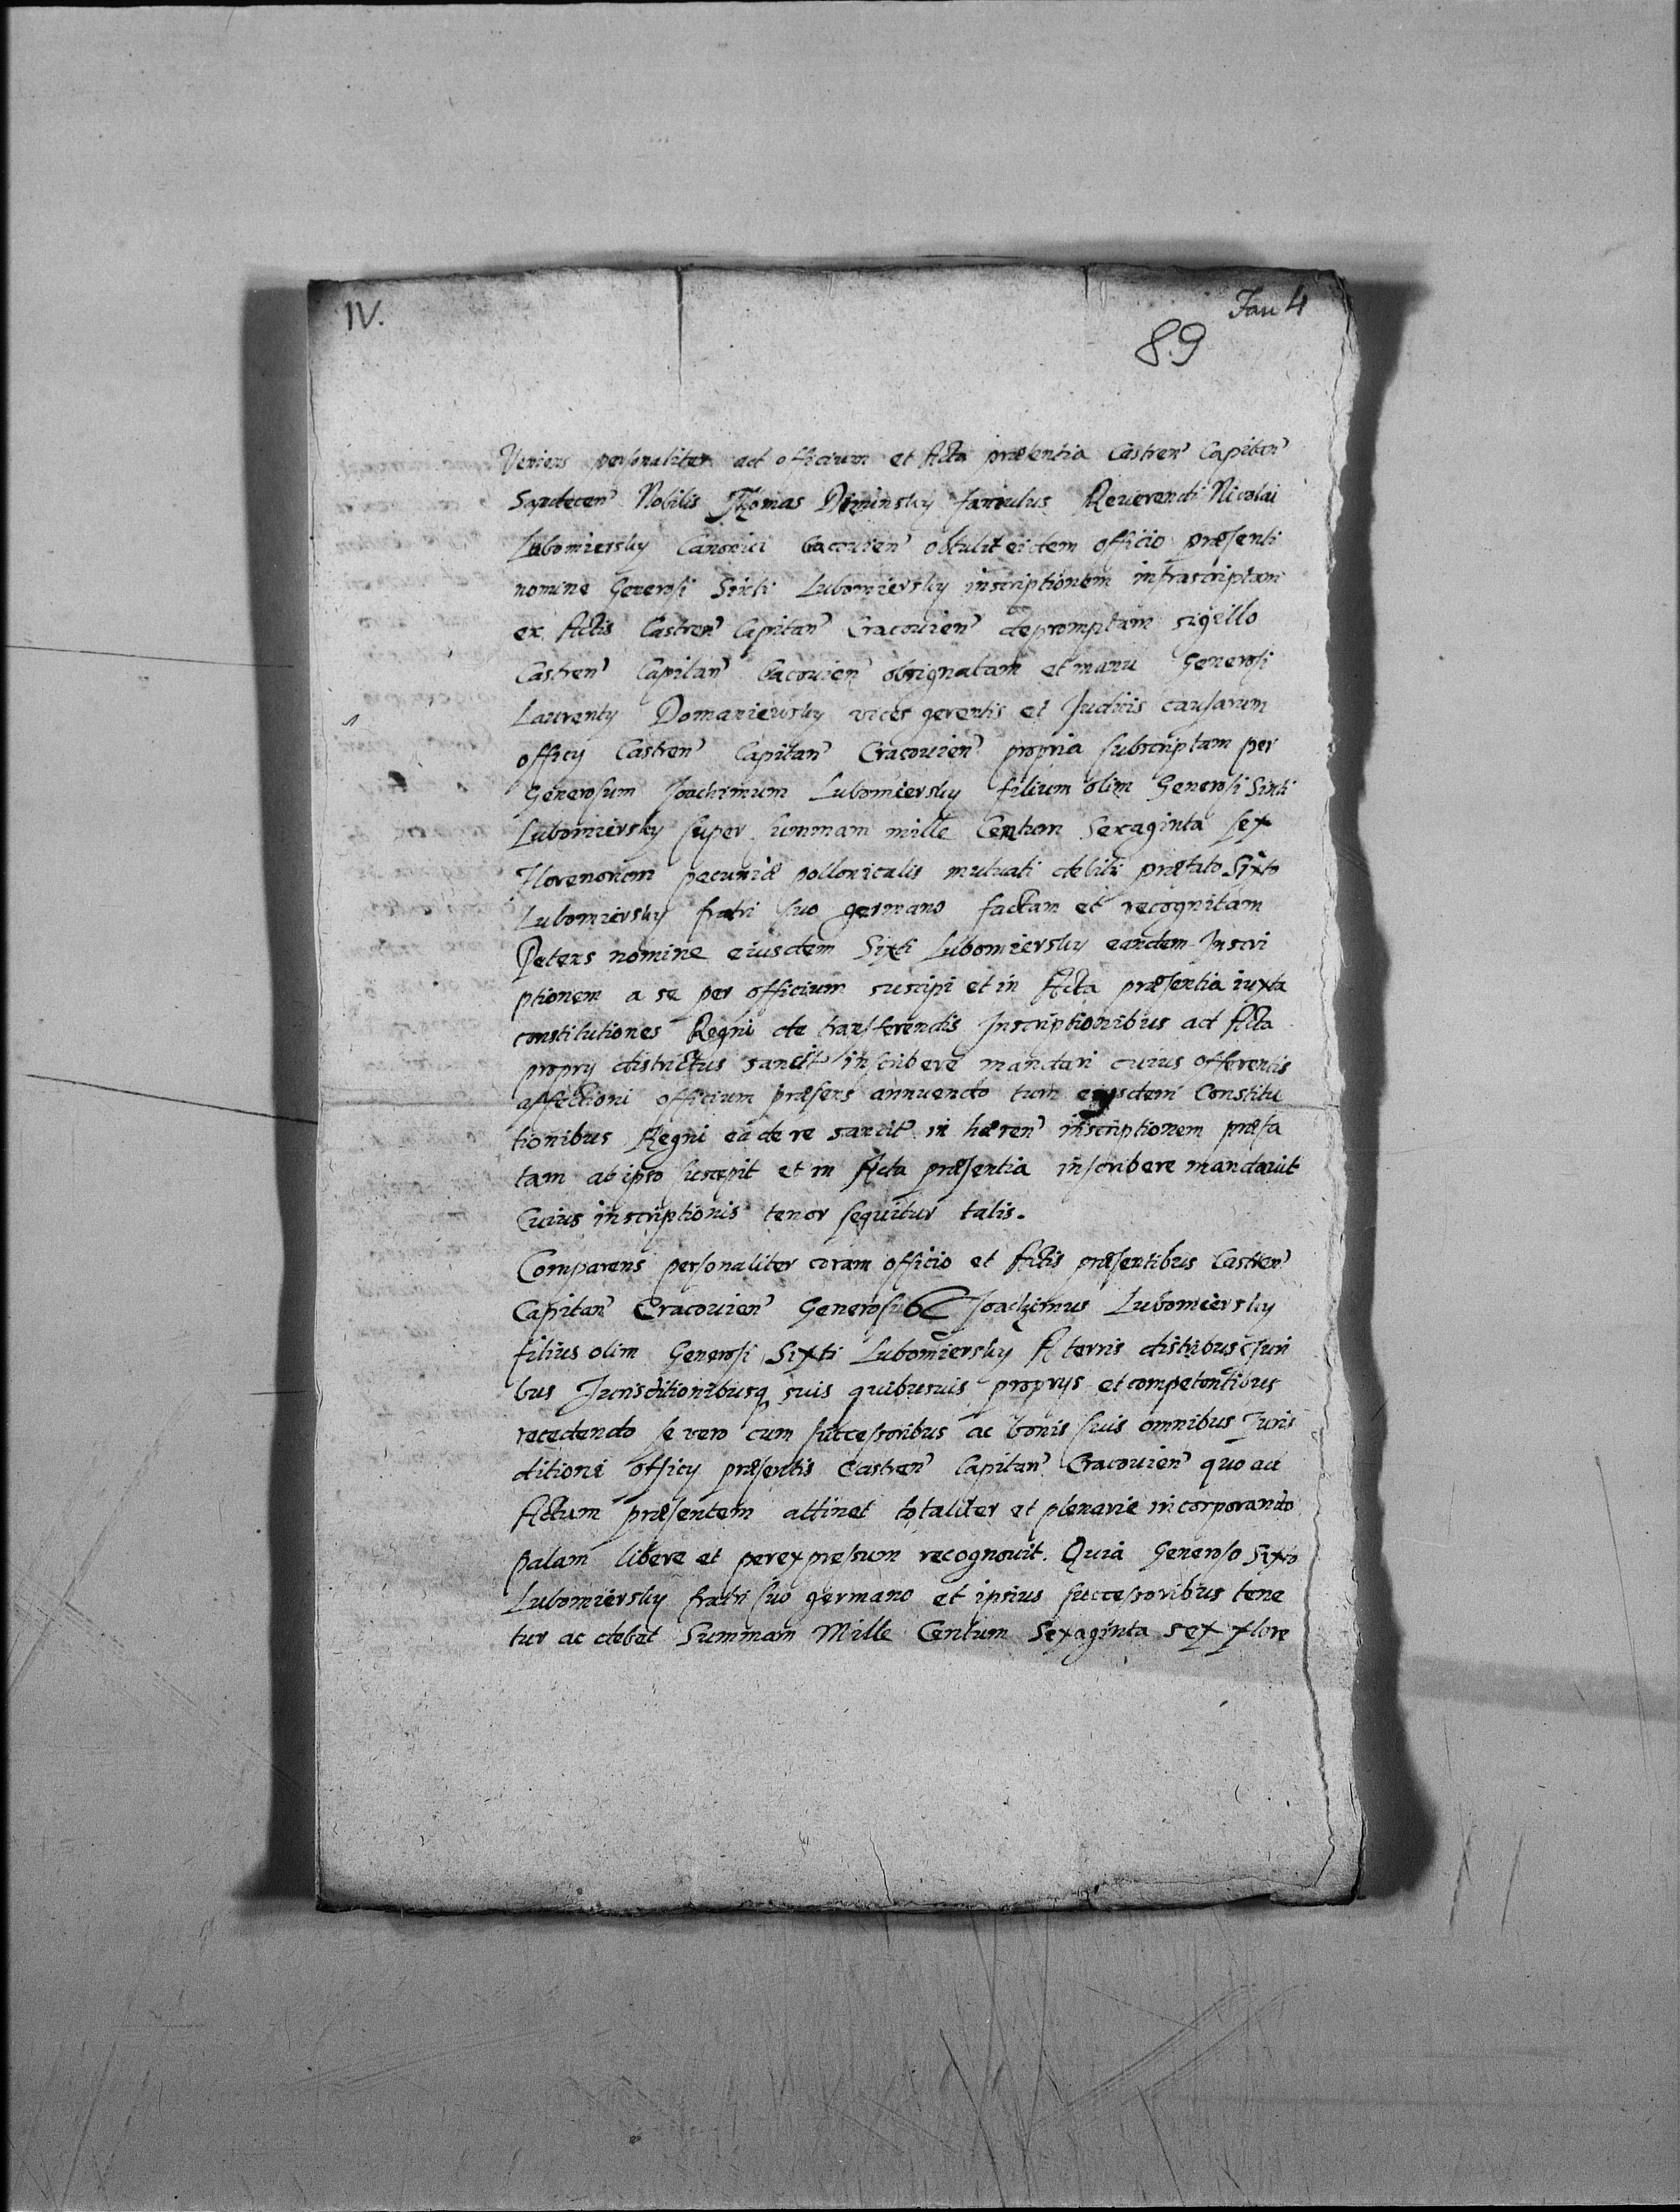 IV.
Fau 4
89
Veniens personaliter ad officium et Acta præsentia Castren Capitan
Sandecen Nobilis Thomas Dzminsky famulus Reuerendi Nicolai
Lubomiersky Canonici Cracouien obtulit eidem officio præsenti
nomine Generosi Sixti Lubomiersky inscriptionem infrascriptam
ex Actis Castren Capitan Cracouien depromptam sigillo
Castren Capitan Cracouien obsignatam et manu Generosi
Laurenty Domaniewsky vices gerentis et Judicis causarum
officy Castren Capitan Cracouien propria subscriptam per
Generosum Joachimum Lubomiersky filium olim Generosi Sixti
Lubomiersky super summam mille Centum Sexaginta sex
Florenorum pecuniæ pollonicalis mutuati debiti præfato Sixto
Lubomiersky fratri suo germano factam et recognitam
Petens nomine eiusdem Sixti Lubomiersky eandem Inscri
ptionem a se per officium suscipi et in Acta præsentia iuxta
constitutiones Regni de transferendis Inscriptionibus ad Acta
propry districtus sancit inscribere mandari cuius offerentis
affectioni officium præsens annuendo tum eiusdem Constitu
tionibus Regni ea de re sancit in hæren inscriptionem præfa
tam ab ipso suscepit et in Acta præsentia inscribere mandauit
Cuius inscriptionis tenor sequitur talis.
Comparens personaliter coram officio et Actis præsentibus Castren
Capitan Cracouien Generosus Joachimus Lubomiersky
filius olim Generosi Sixti Lubomiersky A terris distibus Juri
bus Jurisditionibusq suis quibusuis propryis et competentibus
recedendo se vero cum successoribus ac bonis suis omnibus Juris
ditioni officy præsentis Castren Capitan Cracouien quo ad
Actum præsentem attinet totaliter et plenarie incorporando
palam libere et per expressum recognouit. Quia Generoso Sixto
Lubomiersky fratri suo germano et ipsius successoribus tene
tur ac debet Summam Mille Centum Sexaginta sex flore